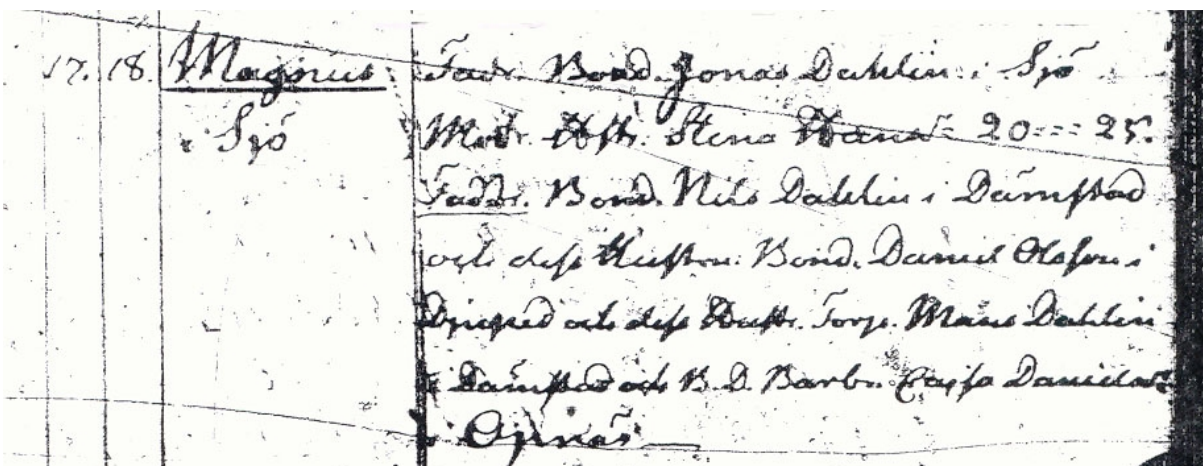 17. 18. Magnus Fadr. Bond. Jonas Dahlin i Sjö
i Sjö Modr. Hustr. Stina Hans= 20 == 25.
Faddr. Bond. Nils Dahlin i Dämstad
och dess Hustru. Bond. Daniel Olofson i
och dess Hustr. Torp. Måns Dahlin
i Dämstad och B. D. Barbr. Cajsa Daniels
i